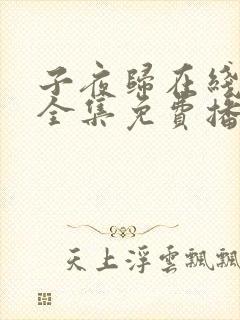 子夜歸在綫
全集免費播
天上浮雲飄飄